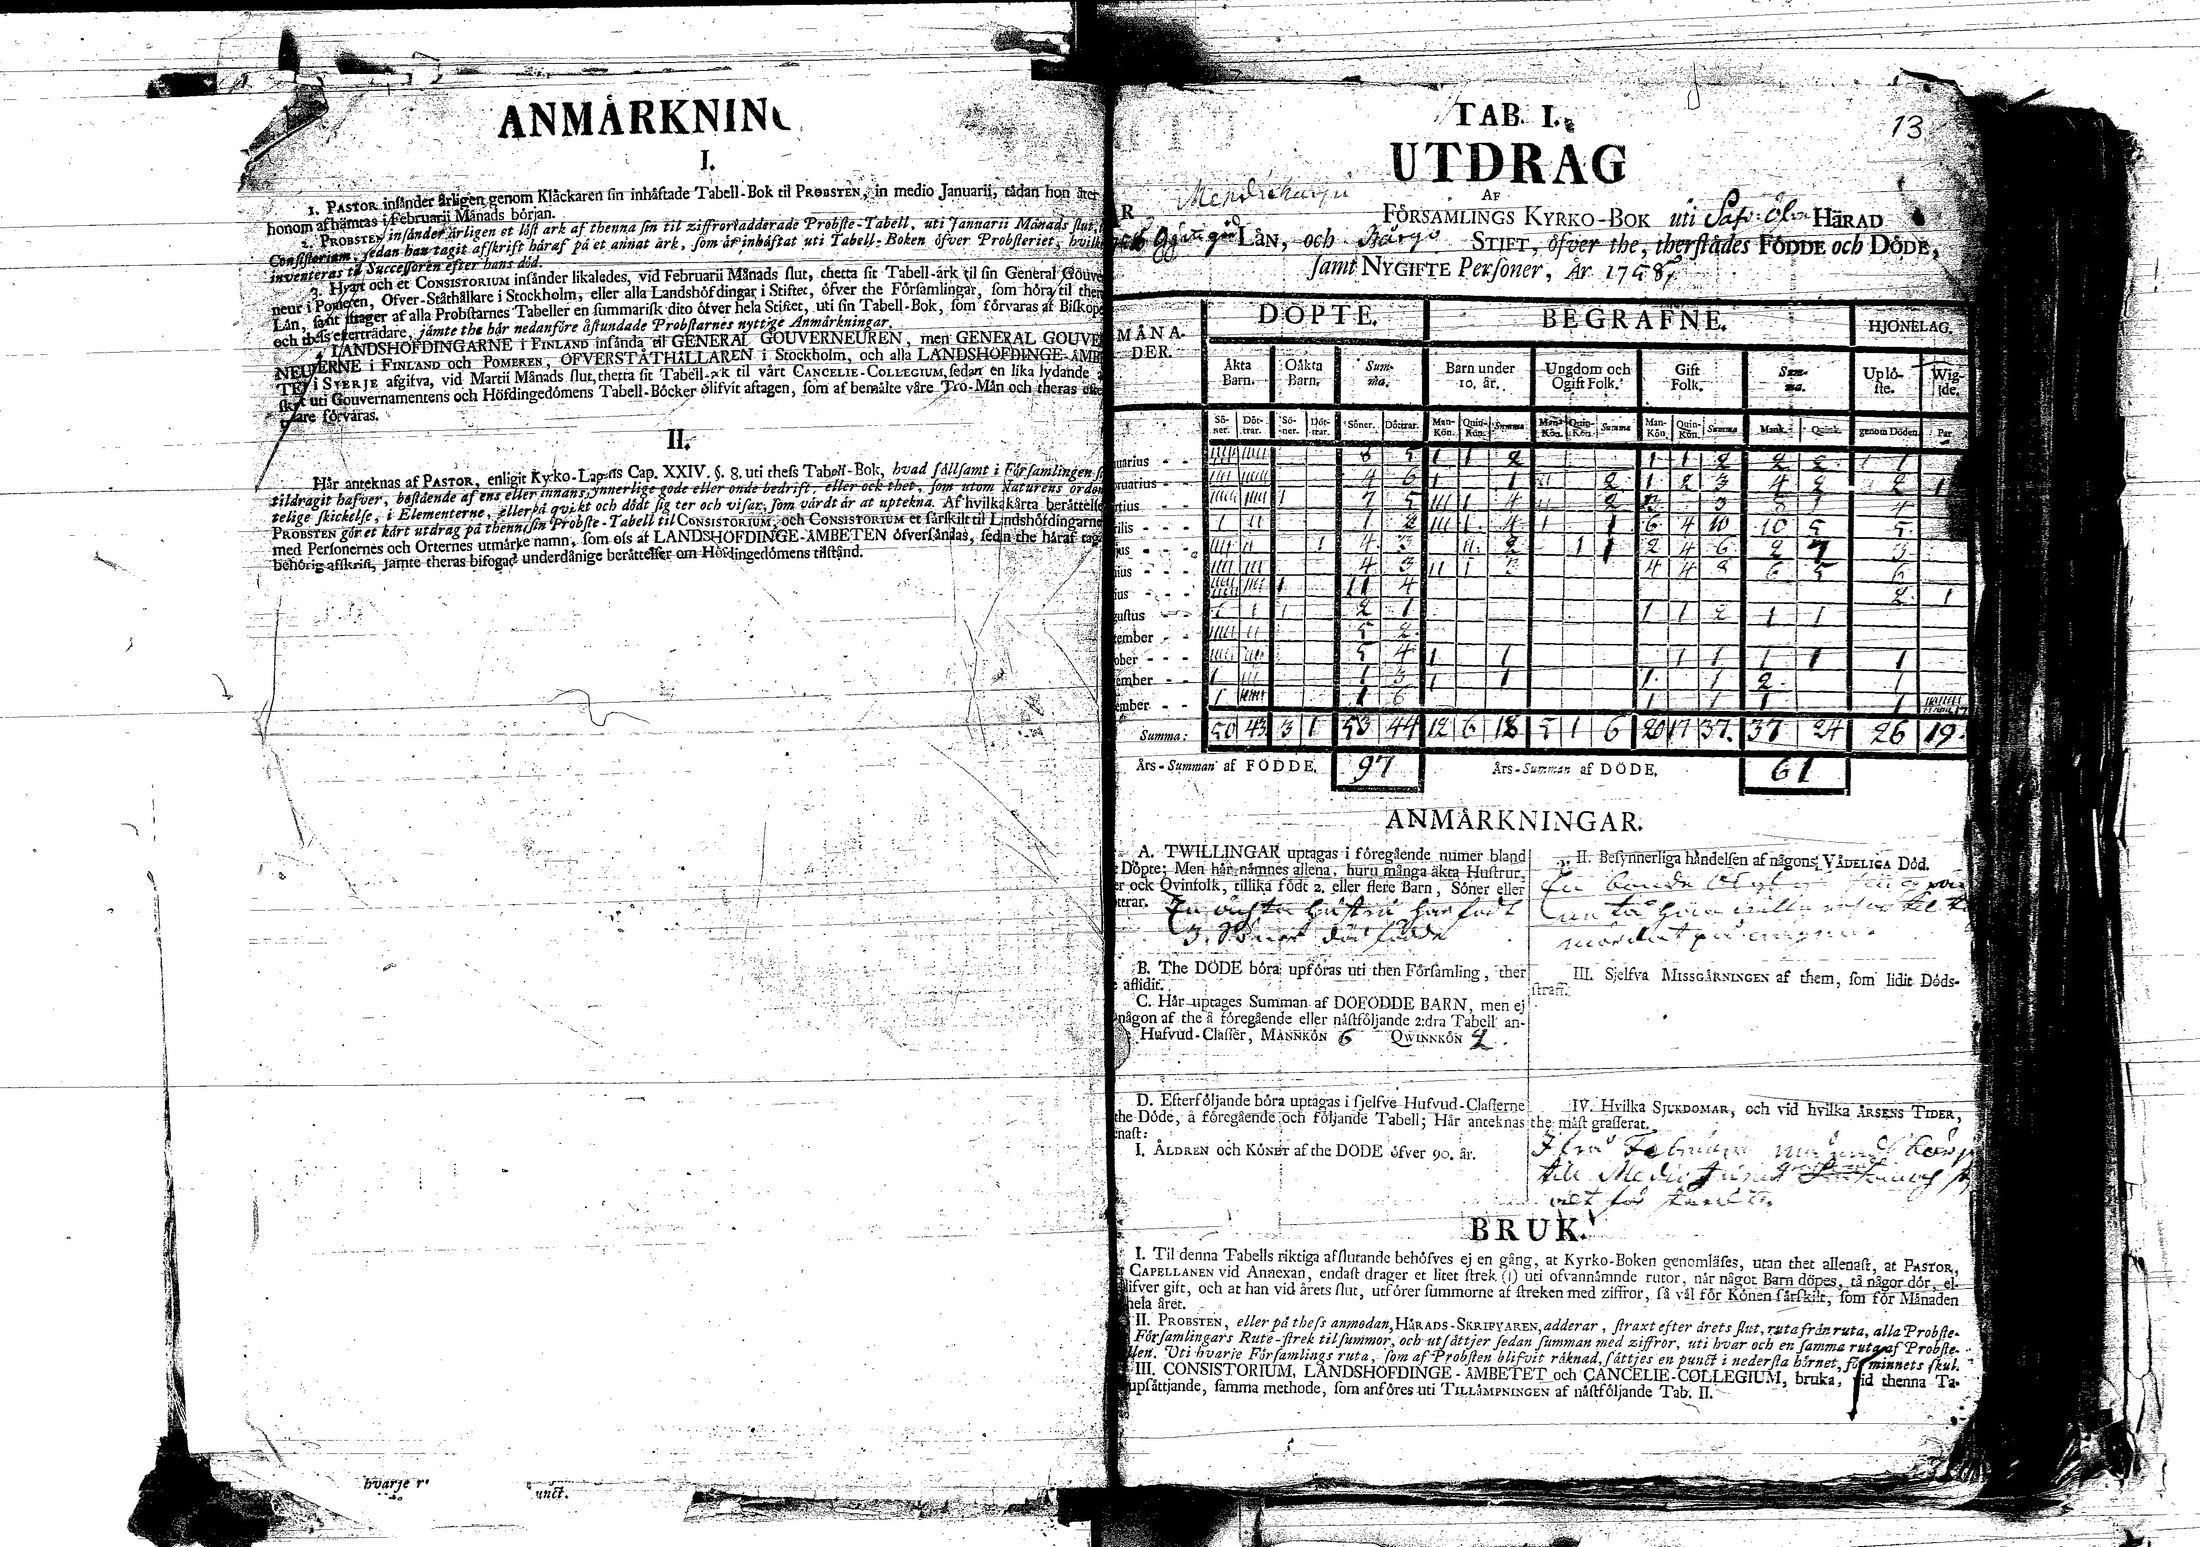 ANMÅRKNIN
I.
1. PASTOR insånder årligen genom Klåckaren sin inhåftade Tabell-Bok til PROBSTEN, in medio Januarii, tådan hon åter
honom afhämtas i Februarii Månads början.
2. PROBSTEN insånder årligen et löst ark af thenna sin til ziffror adderade Probste-Tabell, uti Jannarii Månads slut,
Consistorium, sedan han tagit afskrift håraf på et annat ark, som år inhåftat uti Tabell-Boken öfver Probsteriet, hvilk
inventeras til Successoren efter hans död.
3. Hvart och et CONSISTORIUM insånder likaledes, vid Februarii Månads slut, thetta sit Tabell-ark til sin General Gouve
neur i Pomeren, Ofver-Ståthållare i Stockholm, eller alla Landshöfdingar i Stiftet, öfver the Församlingar, som höra til ther
Lån, samt tager af alla Probstarnes Tabeller en summarisk dito öfver hela Stiftet, uti sin Tabell-Bok, som förvaras af Biskops
och thess eftertrådare, jåmte the hår nedanföre åstundade Probstarnes nyttige Anmårkningar.
4. LANDSHÖFDINGARNE i FINLAND insånda til GENERAL GOUVERNEUREN, men GENERAL GOUVE
NEURERNE i FINLAND och POMEREN, ÖFVERSTÅTHÅLLAREN i Stockholm, och alla LANDSHÖFDINGE-ÅMB
TEN i SVERJE afgifva, vid Martii Månads slut, thetta sit Tabell-ark til vårt CANCELIE-COLLEGIUM, sedan en lika lydande
skrift uti Gouvernamentens och Höfdingedömens Tabell-Böcker blifvit aftagen, som af bemålte våre Tro-Mån och theras efte
dare förvaras.
II.
Hår anteknas af PASTOR, enligit Kyrko-Lagens Cap. XXIV. §. 8. uti thess Tabell-Bok, hvad sållsamt i Församlingen
tildragit hafver, bestående af ens eller innans synnerlige gode eller onde bedrift, eller ock thet, som utom Naturens orden
telige skickelse, i Elementerne, eller på qvikt och dödt sig ter och visar, som vårdt år at uptekna. Af hvilka kårta beråttelse
PROBSTEN gör et kårt utdrag på thenna sin Probste-Tabell til CONSISTORIUM, och CONSISTORIUM et sårskilt til Landshöfdingarne
med Personernes och Orternes utmårkte namn, som oss af LANDSHÖFDINGE-ÅMBETEN öfversåndas, sedan the håraf tag
behörig afskrift, jåmte theras bifogade underdånige beråttelser om Höfdingedömens tilstånd.
hvarje
unct.
13
TAB. I.
UTDRAG
AF
FÖRSAMLINGS KYRKO-BOK uti HÅRAD
LÅN, och Bårgo STIFT, öfver the, therstådes FÖDDE och DÖDE,
samt NYGIFTE Personer, År 1758
MÅNA-
DER.
DÖPTE. BEGRAFNE. HJONELAG.
Åkta Barn. Oåkta Barn. Summa. Barn under 10. år. Ungdom och Ogift Folk. Gift Folk. Summa. Uplöste. Wigde.
Söner. Döttrar. Söner. Döttrar. Söner. Döttrar. Man-Kön. Quin-Kön. Summa Man-Kön. Quin-Kön. Summa Man-Kön. Quin-Kön. Summa Mank. Quink. genom Döden. Par
nuarius - - 8 5 1 1 2 1 1 2 2 2 1
bruarius - - 4 6 1 1 2 1 2 3 4 2 2 1
rtius - - 7 5 4
rilis - - 1 2 4 1 1 6 4 10 10 5 5
jus - - - 4 3 2 1 1 2 4 6 2 7 3
nius - - - 4 3 3 4 4 8 6 5 6
ius - - - 11 4 2 1
gustus - - - 2 1 1 1 2 1 1
tember - - - 5 2
ober - - - 5 4 1 1 1 1 1 1 1
ember - - - 1 3 1 1 1 1 2 1
ember - - 1 6 1 1 1 1
Summa: 50 43 3 1 53 44 12 6 18 5 1 6 20 17 37. 37 24 26 19.
Års-Summan af FÖDDE. 97 Års-Summan af DÖDE. 61
ANMÅRKNINGAR.
A. TWILLINGAR uptagas i föregående numer bland
Döpte; Men hår nåmnes allena, huru många åkta Hustrur,
er ock Qvinfolk, tillika födt 2. eller flere Barn, Söner eller
ttrar. En åchta hustru har födt
3. Söner död födde
B. The DÖDE böra upföras uti then Församling, ther
aflidit.
C. Hår uptages Summan af DÖFÖDDE BARN, men ej
någon af the å föregående eller nåstföljande 2:dra Tabell an-
Hufvud-Classer, MANNKÖN 6 QWINNKÖN 2.
D. Efterföljande böra uptagas i sjelfve Hufvud-Classerne
the Döde, å föregående och följande Tabell; Hår anteknas
nast:
I. ÅLDREN och KÖNET af the DÖDE öfver 90. år.
II. Besynnerliga håndelsen af någons VÅDELIGA Död.
En bonde
III. Sjelfva MISSGÅRNINGEN af them, som lidit Döds-
straff.
IV. Hvilka SJUKDOMAR, och vid hvilka ÅRSENS TIDER,
the måst grasserat.
Ifrå Februarii
till Medii Junii
BRUK.
I. Til denna Tabells riktiga afslutande behöfves ej en gång, at Kyrko-Boken genomlåses, utan thet allenast, at PASTOR,
CAPELLANEN vid Annexan, endast drager et litet strek (1) uti ofvannåmnde rutor, når något Barn döpes, tå någor dör, el-
lifver gift, och at han vid årets slut, utförer summorne af streken med ziffror, så vål för Könen sårskilt, som för Månaden
hela året.
II. PROBSTEN, eller på thess anmodan, HÅRADS-SKRIFVAREN, adderar, straxt efter årets slut, ruta från ruta, alla Probste-
Församlingars Rute-strek til summor, och utsåttjer sedan summan med ziffror, uti hvar och en samma ruta af Probste-
llen. Uti hvarje Församlings ruta, som af Probsten blifvit råknad, såttjes en punct i nedersta hörnet, för minnets skul.
III. CONSISTORIUM, LANDSHÖFDINGE-ÅMBETET och CANCELIE-COLLEGIUM, bruka, vid thenna Ta-
upsåttjande, samma methode, som anföres uti TILLÅMPNINGEN af nåstföljande Tab. II.